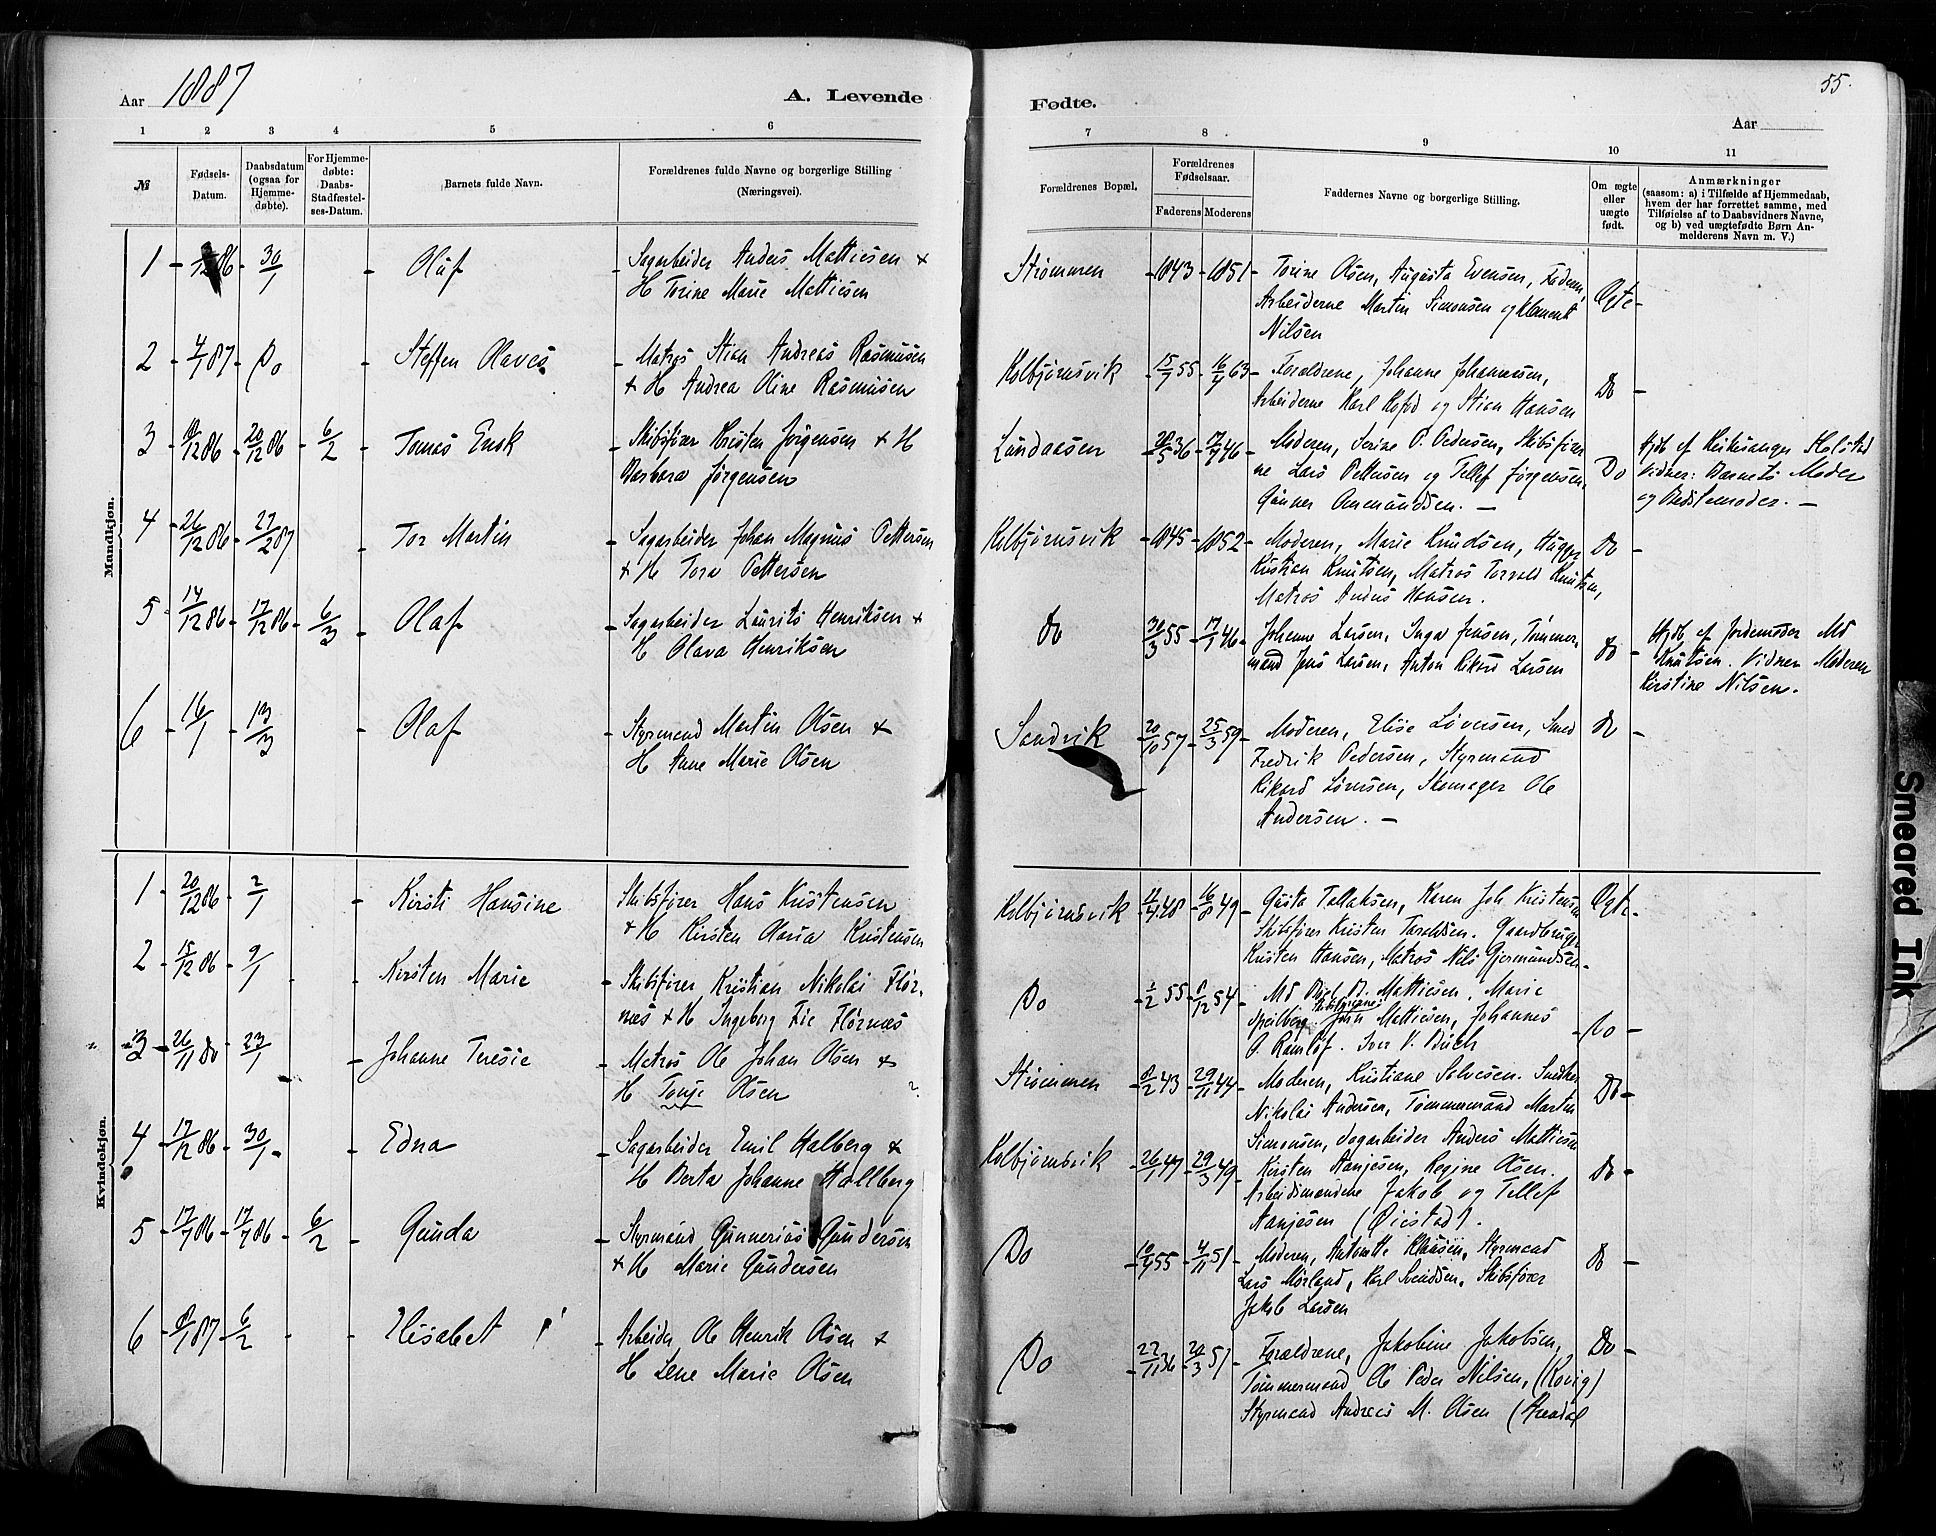 Aar 1887
A. Levende
1 2 3 4 5 6
№
Fødsels-
Datum.
Daabsdatum
(ogsaa for
Hjemme-
døbte).
For Hjemme-
døbte:
Daabs-
Stadfæstel-
ses-Datum.
Barnets fulde Navn.
Forældrenes fulde Navne og borgerlige Stilling
(Næringsvei).
Mandkjøn.
1 - 86 - 30/1 - Olaf - Sagarbeider Anders Mathiesen +
H Torine Marie Mathiesen
2 - 4/1 87 - Do - Steffen Olaves - Matros Stian Andreas Rasmusen
+ H Andrea Oline Rasmusen
3 - /12 86 - 20/12 86 - 6/2 Tomas Enok - Skibsfører Kristen Jörgensen + H
Barbara Jørgensen
4 - 26/12 86 - 27/2 87 - Tor Martin - Sagarbeider Johan Magnus Pettersen
+ H Tora Pettersen
5 - 14/12 86 - 17/12 86 - 6/3 - Olaf - Sagarbeider Laurits Henriksen +
H Olava Henriksen
6 - 16/1 - 13/3 - Olaf - Styrmand Martin Olsen +
H Anne Marie Olsen
Kvindekjøn.
1 - 20/12 86 - 2/1 - Kirsti Hansine - Skibsfører Hans Kristensen
+ H Kirsten Maria Kristensen
2 - 15/12 86 - 9/1 - Kirsten Marie - Skibsfører Kristian Nikolai Flør-
næs + H Ingeberg Fie Flørnæs
3 - 26/11 do - 23/1 - Johanne Teresie - Matros Ole Johan Olsen +
H Tonje Olsen ?
4 - 17/12 86 - 30/1 - Edna - Sagarbeider Emil Halberg +
H Berta Johanne Hallberg
5 - 17/7 86 - 17/7 86 - 6/2 - Gunda - Styrmand Gunnerius Gundersen
+ H Marie Gundersen
6 - 8/1 87 - 6/2 - Elisabet - Arbeider Ole Henrik Olsen +
H Lene Marie Olsen
55.
Fødte.
Aar
7 8 9 10 11
Forældrenes Bopæl.
Forældrenes
Fødselsaar.
Faderens Moderens
Faddernes Navne og borgerlige Stilling.
Om ægte
eller
uægte
født.
Anmærkninger
(saasom: a) i Tilfælde af Hjemmedaab,
hvem der har forrettet samme, med
Tilføielse af to Daabsvidners Navne,
og b) ved uægtefødte Børn An-
melderens Navn m. V.)
Strømmen - 1843 - 1851 - Torine Olsen, Augusta Evensen, Faderen,
Arbeiderne Morten Simonsen og Klement
Nilsen
Ægte -
Kolbjørnsvik - 15/7 55 - 16/4 63 - Forældrene, Johanne Johannessen,
Arbeiderne Karl Kofod og Stian Hansen
Do -
Lundaasen - 28/5 36 - 17/7 46 - Moderen, Serine P. Pedersen, Skibsfører
ne Lars Pettersen og Tellef Jørgensen,
Gunner Ommundsen. -
Do Hjdb. af Kirkesanger Holstad
Vidner: Barnets Moder
og Bedstemoder. -
Kolbjørnsvik - 1845 - 1852 - Moderen, Marie Knudsen, Hugger
Kristian Knutsen, Matros Torvald Knutsen,
Matros Anders Hansen.
Do -
Do 30/3 55 - 17/1 46 - Johanne Larsen, Inga Jensen, Tømmer-
mand Jens Larsen, Anton Rikard Larsen
do - Hjdb. af Jordemoder Md
Knutsen. Vidner Moderen
Kirstine Nilsen.
Sandvik 20/10 57 - 25/3 59 - Moderen, Elise Løversen, Smed
Fredrik Pedersen, Styrmand
Rikard Løversen, Skomager Ole
Andersen. -
Do -
Kolbjørnsvik - 12/4 48 - 16/8 49 - Gusta Tallaksen, Karen Joh Kristensen
Skibsfører Kristen Taraldsen. Gaardbruger
Kristen Hansen, Matros Nils Gjermundsen -
Ægte -
Do - 1/2 55 - 8/12 54 - Md B. Mattiesen. Marie
Speilberg. John Mattiesen, Johannes
O. Ramløf. Iver V. Buch
Do -
Strømmen - 8/2 43 - 29/11 44 - Moderen, Kristiane Solvesen. Snedker
Nikolai Andersen, Tømmermand Morten
Simonsen, Sagarbeider Anders Mattiesen
Do -
Kolbjørnsvik - 26/1 47 - 29/3 49 - Kirsten Aanjesen, Regine Olsen.
Arbeidsmændene Jakob og Tellef
Aanjesen (Øiestad).
Do -
Do - 10/4 55 - 4/11 51 - Moderen, Antonette Klausen, Styrmand
Lars Mørland, Karl Svendsen. Skibsfører
Jakob Larsen
Do -
Do - 22/11 36 - 20/3 51 - Forældrene, Jakobine Jakobsen,
Tømmermand Ole Peder Nilsen, (Revig)
Styrmand Andreas M. Olsen (Arendal
Do -
Smeared Ink